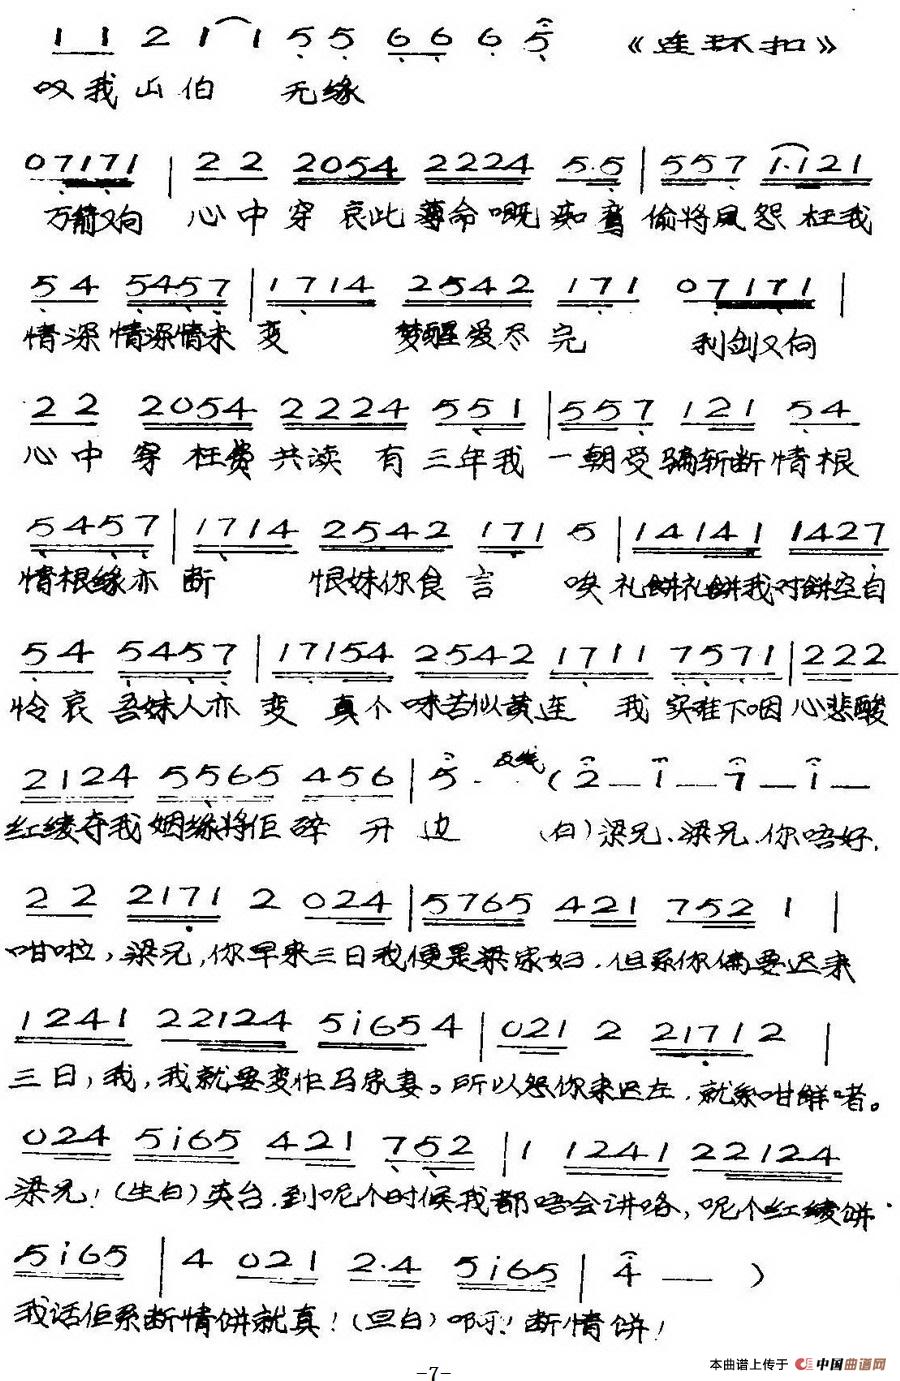 1 1 2 1 1 5 5 6 6 6 5 《连环扣》
叹我山伯 无缘
07171 | 2 2 2054 2224 5·5 | 557 1·121
万箭又向 心中穿 哀此薄命嘅痴鸾 偷将凤怨枉我
54 5457 | 1714 2542 171 07171 |
情深情深情未变 梦醒爱尽完 利剑又向
2 2 2054 2224 551 | 557 121 54
心中穿 枉费共读 有三年我 一朝受骗斩断情根
5457 | 1714 2542 171 5 | 14141 1427
情根缘亦断 恨妹你食言 唉礼饼礼饼我对饼空自
54 5457 | 17154 2542 1711 7571 | 222
怜哀吾妹人亦变 真个味苦似黄连 我实难下咽心悲酸
2124 5565 456 | 5 · 反线 ( 2 — 1 — 7 — 1 —
红绫夺我姻缘将佢碎开边 (白)梁兄、梁兄、你唔好,
2 2 2171 2 024 | 5765 421 752 1 |
咁啦,梁兄,你早来三日我便是梁家妇,但系你偏要迟来
1241 22124 5i654 | 021 2 21712 |
三日,我,我就要变作马家妻。所以怨你来迟左,就系咁解啫。
024 5i65 421 752 | 1 1241 22124
梁兄!(生白)英台,到呢个时候我都唔会讲咯,呢个红绫饼
5i65 | 4 021 2·4 5i65 | 4 — )
我话佢系断情饼就真!(旦白)啊!断情饼!
-7-
本曲谱上传于 中国曲谱网